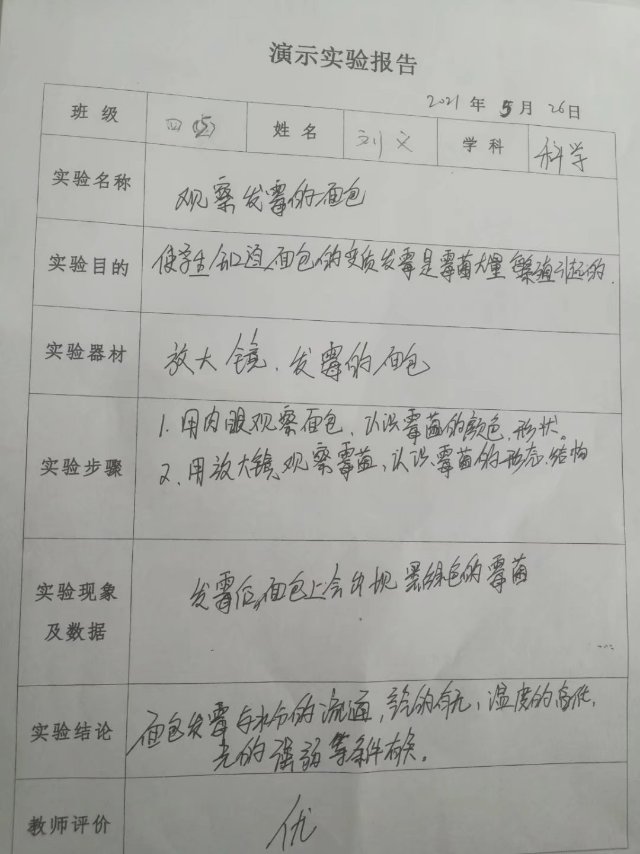 演示实验报告
2021年5月26日
班级 四(5) 姓名 刘文 学科 科学
实验名称 观察发霉的面包
实验目的 使学生知道面包的变质发霉是霉菌大量繁殖引起的.
实验器材 放大镜、发霉的面包
1.用肉眼观察面包,认识霉菌的颜色、形状。
实验步骤 2、用放大镜观察霉菌,认识霉菌的形态、结构
实验现象 发霉后面包上会出现黑绿色的霉菌
及数据
实验结论 面包发霉与水分的流通,的有无、温度的高低,
光的强弱等条件有关。
教师评价 优